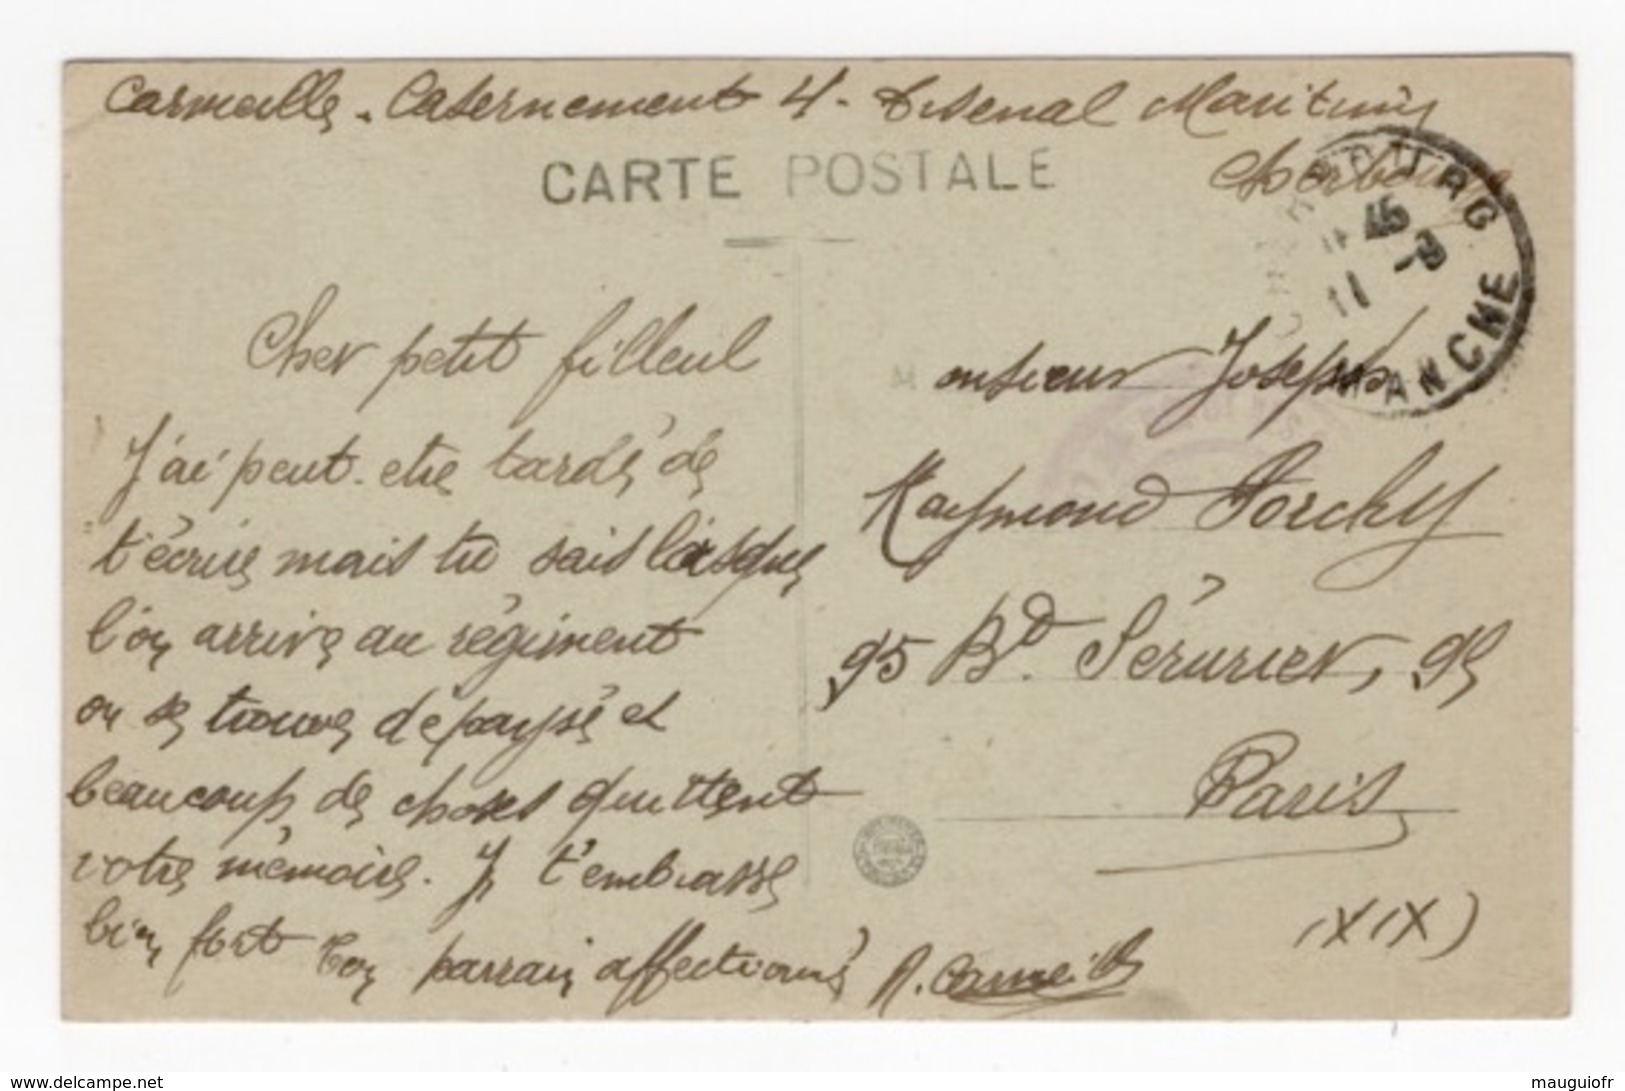 Carmeille - Casernement 4 - Arsenal Maritime
Cherbourg
CARTE POSTALE
CHERBOURG
45
-9
MANCHE
Cher petit filleul
J'ai peut-etre tardé de
t'écrire mais tu sais lorsque
l'on arrive au régiment
on se trouve dépaysé et
beaucoup de choses quittent
votre mémoire. Je t'embrasse
bien fort Ton parrain affectionné R. Carmeille
Monsieur Joseph
Raymond Porchy
95 Bd. Sérurier, 95
Paris
(XIX)
www.delcampe.net
mauguiofr